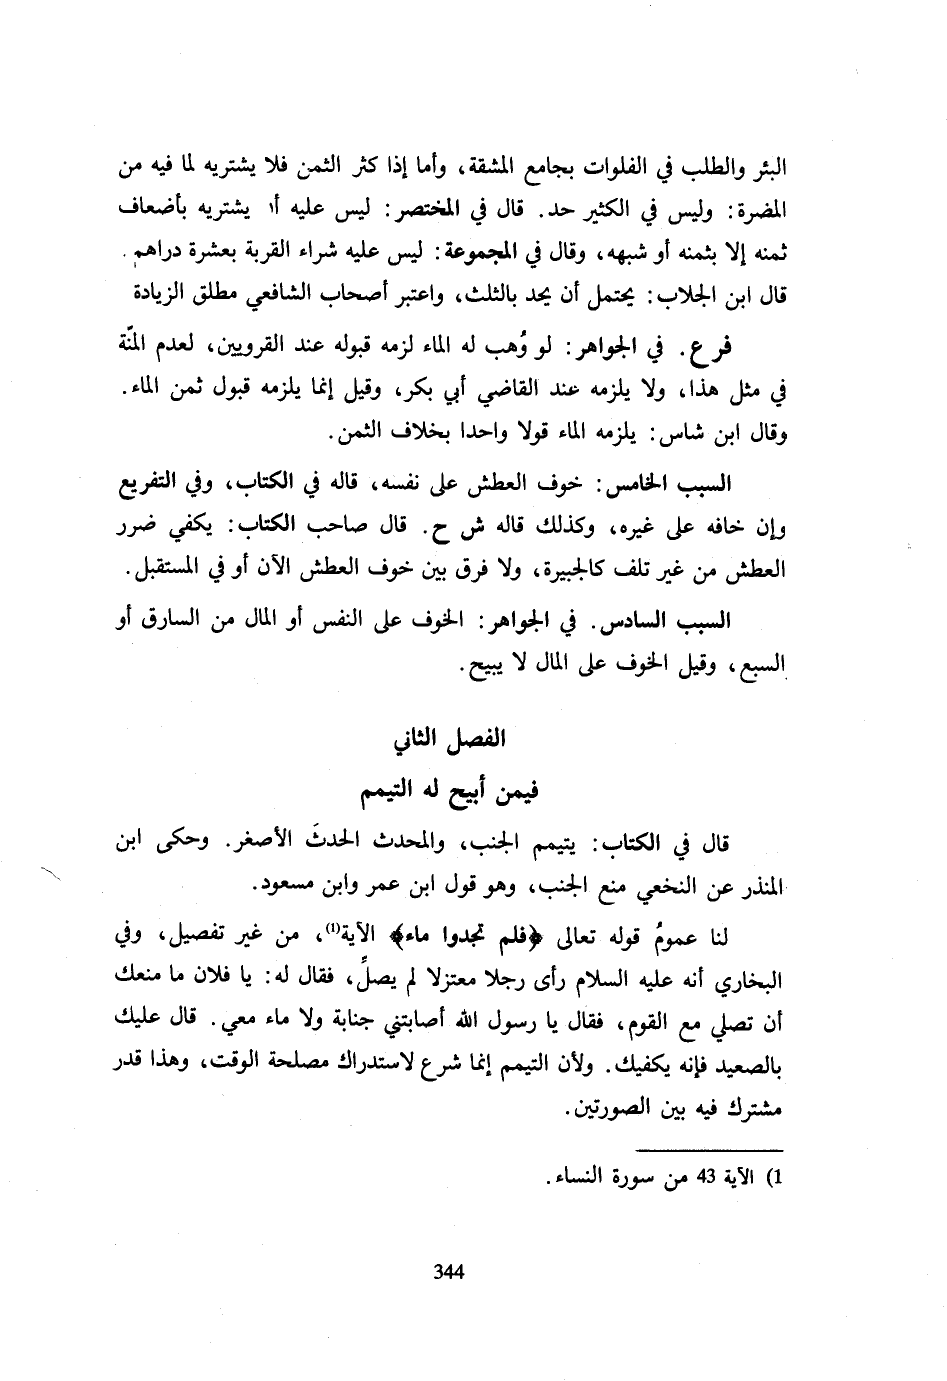 البئر والطلب في الفلوات بجامع المشقة، وأما إذا كثر الثمن فلا يشتريه لما فيه من
المضرة: وليس في الكثير حد. قال في المختصر: ليس عليه أ، يشتريه بأضعاف
ثمنه إلا بثمنه أو شبهه، وقال في المجموعة: ليس عليه شراء القربة بعشرة دراهم.
قال ابن الجلاب: يحتمل أن يحد بالثلث، واعتبر أصحاب الشافعي مطلق الزيادة
فرع. في الجواهر: لو وُهب له الماء لزمه قبوله عند القرويين، لعدم المنّة
في مثل هذا، ولا يلزمه عند القاضي أبي بكر، وقيل إنما يلزمه قبول ثمن الماء.
وقال ابن شاس: يلزمه الماء قولا واحدا بخلاف الثمن.
السبب الخامس: خوف العطش على نفسه، قاله في الكتاب، وفي التفريع
وإن خافه على غيره، وكذلك قاله ش ح. قال صاحب الكتاب: يكفي ضرر
العطش من غير تلف كالجبيرة، ولا فرق بين خوف العطش الآن أو في المستقبل.
السبب السادس. في الجواهر: الخوف على النفس أو المال من السارق أو
السبع، وقيل الخوف على المال لا يبيح.
الفصل الثاني
فيمن أبيح له التيمم
قال في الكتاب: يتيمم الجنب، والمحدث الحدثَ الأصغر. وحكى ابن
المنذر عن النخعي منع الجنب، وهو قول ابن عمر وابن مسعود.
لنا عمومُ قوله تعالى ﴿فلم تجدوا ماء﴾ الآية(1)، من غير تفصيل، وفي
البخاري أنه عليه السلام رأى رجلا معتزلا لم يصلِّ، فقال له: يا فلان ما منعك
أن تصلي مع القوم، فقال يا رسول الله أصابتني جنابة ولا ماء معي. قال عليك
بالصعيد فإنه يكفيك. ولأن التيمم إنما شرع لاستدراك مصلحة الوقت، وهذا قدر
مشترك فيه بين الصورتين.
1) الآية 43 من سورة النساء.
344